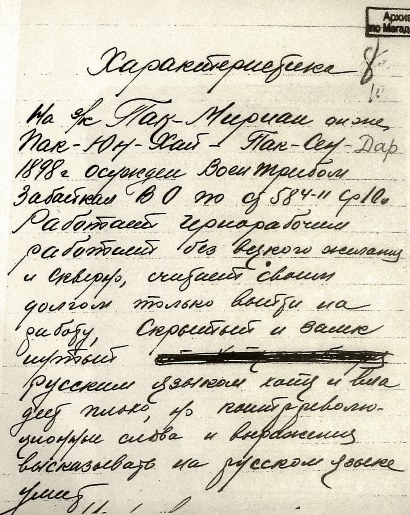 Архив
по Магад
Характеристика
8
На з/к Пак-Мириан он же,
Пак-Юн-Хай - Пак-Сен-Дар
1898г осужден Воентрибом
Забайкал ВО по ст 584-11 ср 10л
Работает чернорабочим
работает без всякого желания
и скверно, считает своим
долгом только выйти на
работу, Скрытый и замк
нутый
русским языком хотя и вла
деет плохо, но контрреволю-
ционные слова и выражения
высказывать на русском языке
умеет